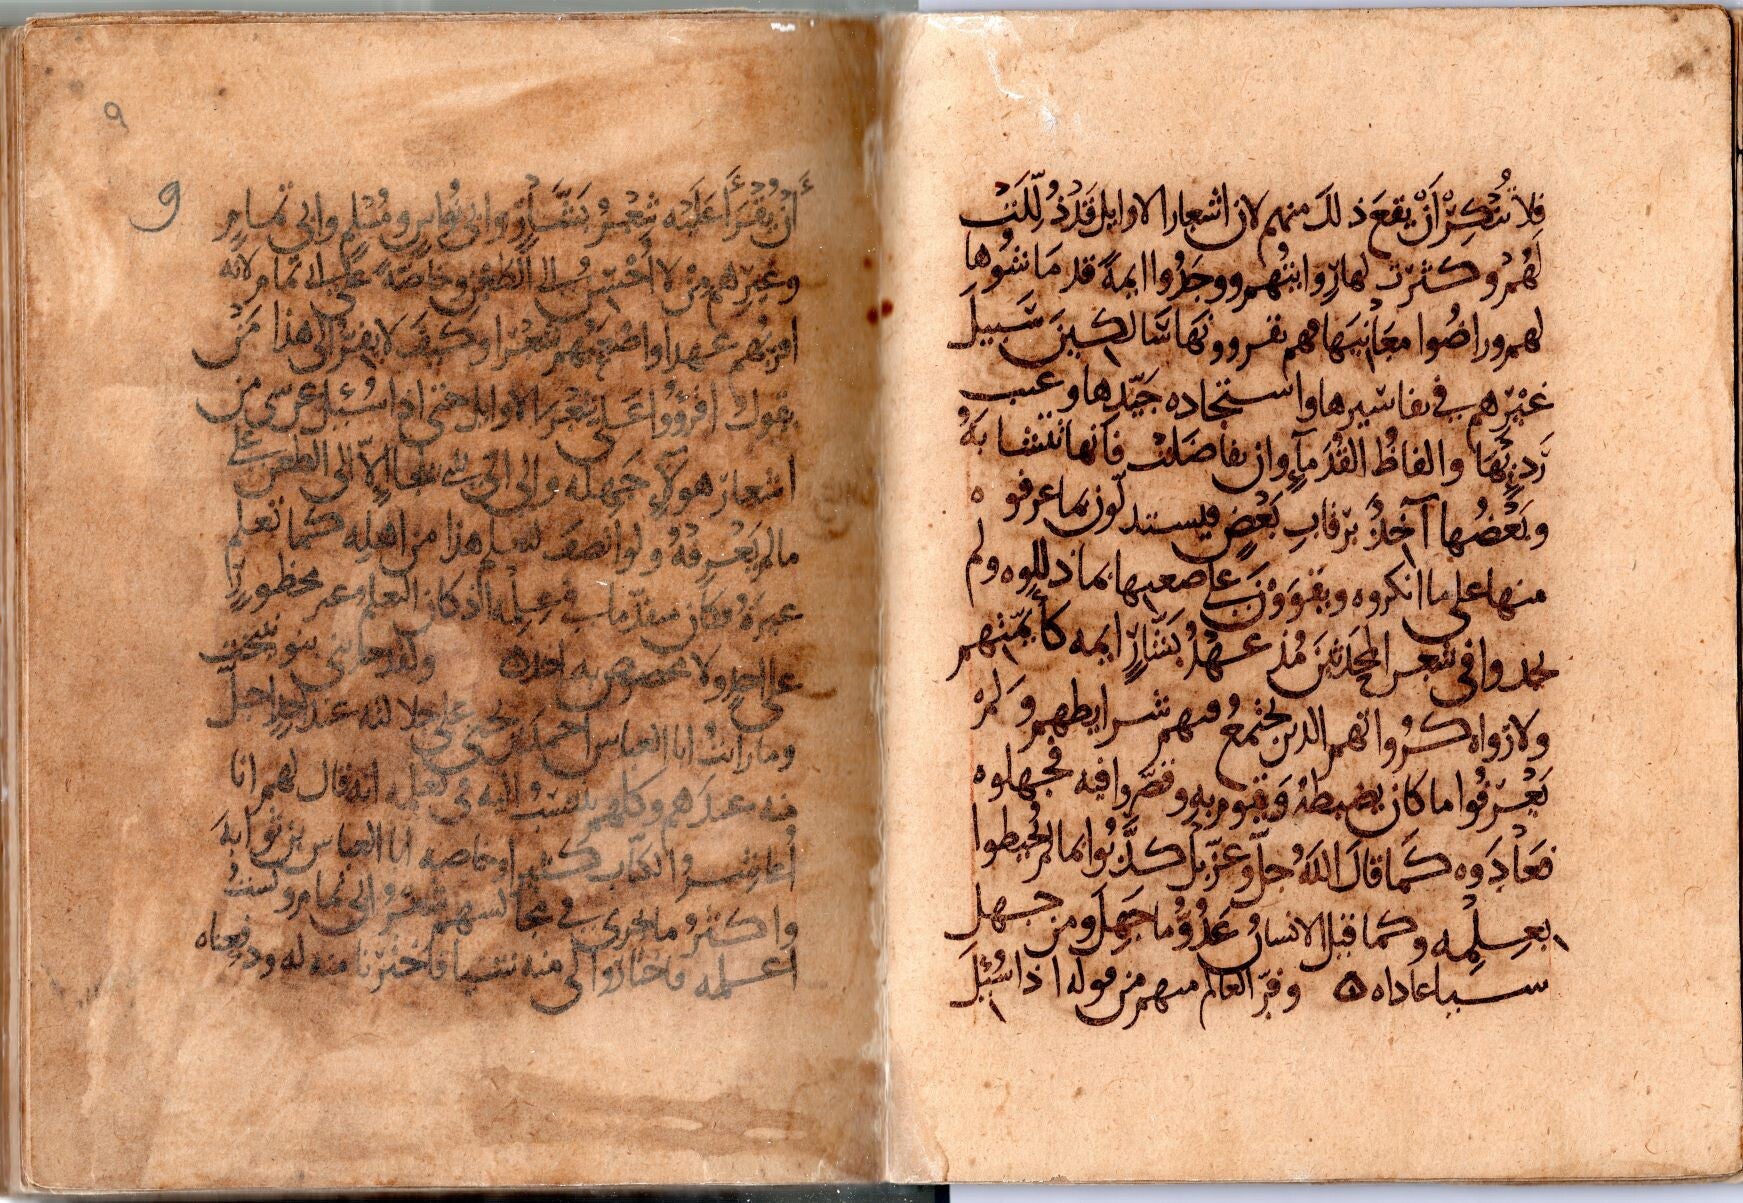 فلا تُنكِرْ أَنْ يقعَ ذلكَ منهم لان اشعار الاوايل قد ذُلِّلَتْ
لهُمْ وكثرت لها رِوايتُهم ووجَدُوا ايمةً قد مَاشَوها
لهم وراضُوا معَانيَها فهم يقرووُنَها سَالكينَ سَبيلَ
غيْرِهم في تفاسيرها واستجاده جَيّدِها وعيب
رَدِيِّها والفاظُ القُدَمآءِ وان تفاضلت فانها تتشابهُ
وبَعْضُها آخذٌ برقابِ بَعْضٍ فيستدلّون بما عرفوه
منها على ما انكروه ويقوَوْنَ على صَعبها بما ذللوه ولم
يجدوا في شعر المحدَثينَ مُذ عهْدِ بَشّارٍ ايمه كأيمّتهم
ولا رُواه كرُواتهم الذين تجتمعُ فيهم شرايطهم ولم
يَعْرفُوا ما كان يضبطهُ ويقوم به وقصَّروا فيه فجهلوه
فعادَوه كما قال اللهُ جلّ وعزّ بل كذَّبُوا بما لم يُحيطوا
بعِلمِه وكما قيل الانسانُ عَدُوُّ ما جَهِلَ ومن جهل
شيا عاداه ه وفرّ العالم منهم من قوله اذا سُئِلَ
٩
9
أنْ يُقْرَأَ عَلَيْه شِعْرُ بَشَّارٍ وابى نُوَاسٍ ومُسْلمٍ وابى تمامٍ
وغيْرهم من لا أُحْسِنُ الى الطعْنِ وخاصّةً على ابى تمام لانه
اقربُهم عهدا واصْعَبُهم شِعْرا وكيْفَ لا يفرّ الى هذا مَنْ
يقول اقرؤُوا علىّ شِعْرَ الاوايل حتى اذا سُئل عن شى من
اشعارِ هولاءِ جَهِلَه والى اىّ شى يلجأ الاّ الى الطعن على
ما لم يَعْرفهُ ولو انصَفَ لتعلم هذا من اهله كما تعلم
غيرَهُ فكان متقدّما فى عِلْمِه اذ كان التعلم غير محظورٍ
على احدٍ ولا مخصوصٍ به احد ه ولقد حدثنى بنو نيبخت
وما رأيتُ ابا العباس احمدَ بن يحيى على جلالته عند احدٍ اجلّ
منه عندهم وكلهم ينتسب اليه فى تعلمه انه قال لهم انا
أُعاشرُ الكتّاب كثيرا وخاصه ابا العباس بن ثوابهَ
واكثرُ ما يجرى فى مجالسهم شعر ابى تمام ولستُ
اعلمه فاختاروا لى منه شيا فاخترنا منه له ودفعناه